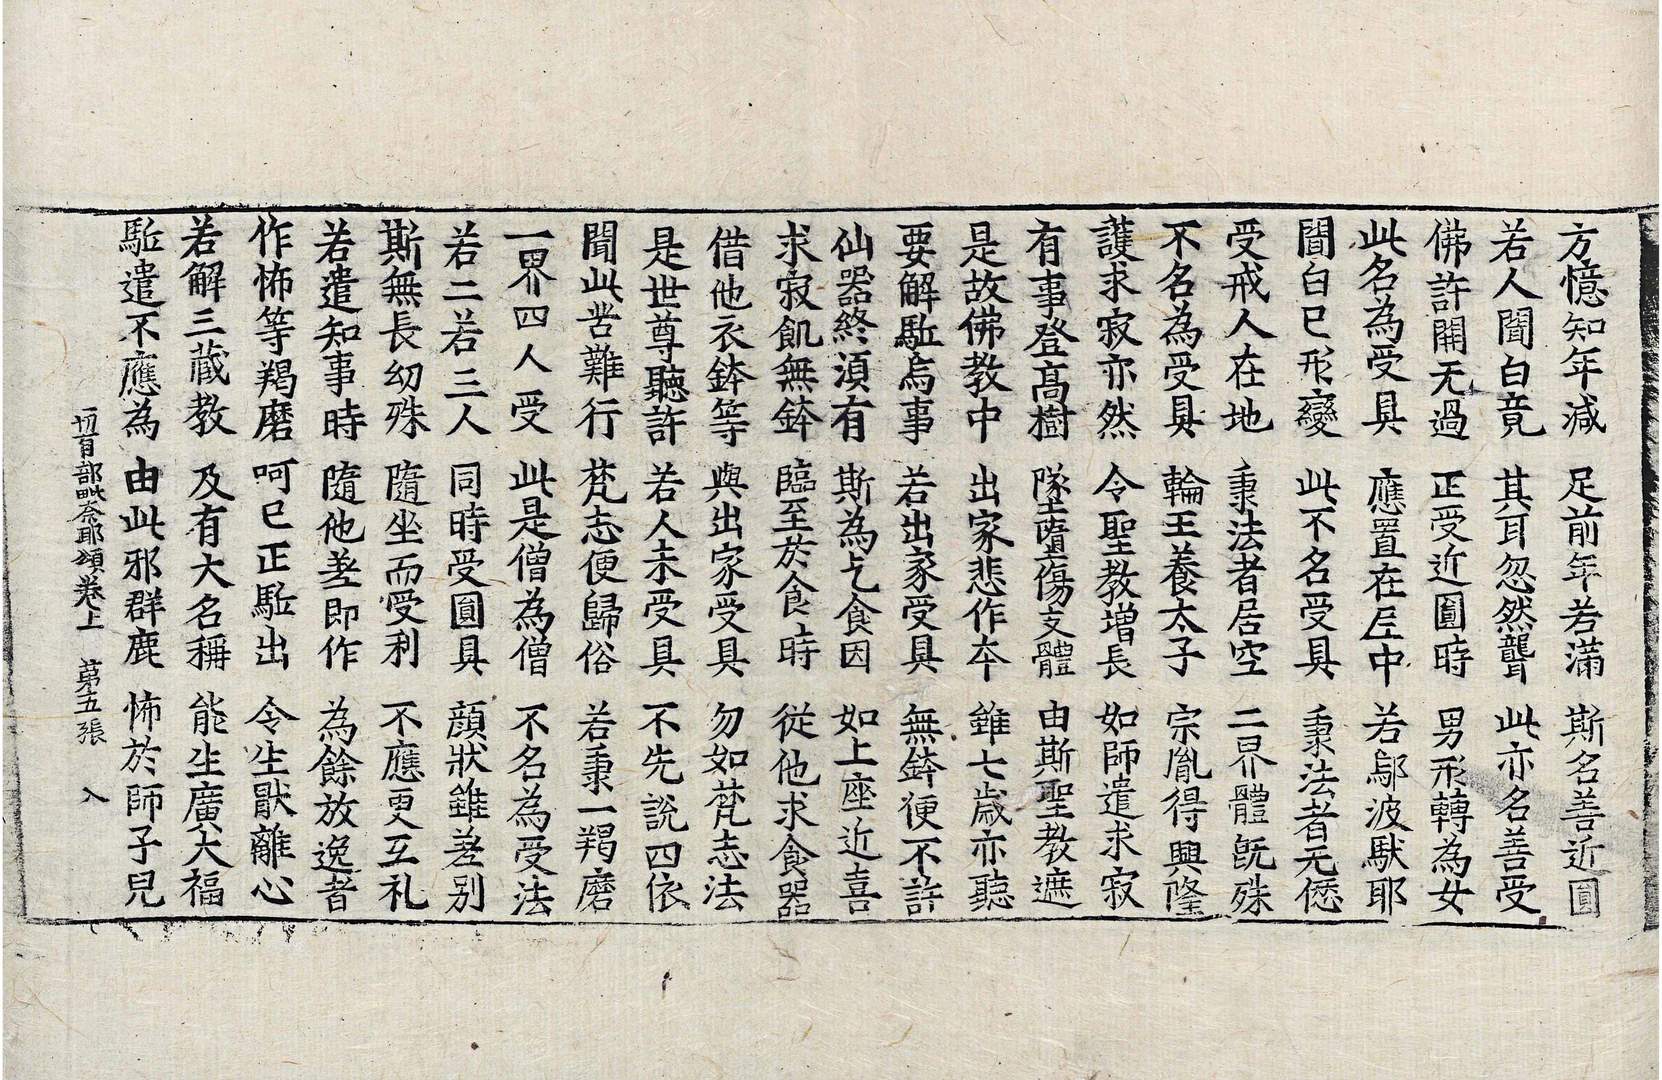 方憶知年減 足前年若滿 斯名善近圓
若人聞白竟 其耳忽然聾 此亦名善受
佛許開无過 正受近圓時 男形轉為女
此名為受具 應置在𡊄中 若鄔波馱耶
聞白已形變 此不名受具 秉法者无愆
受戒人在地 秉法者居空 二界體旣殊
不名為受具 輪王養太子 宗胤得興隆
護求寂亦然 令聖教增長 如師遣求寂
有事登高樹 墜墮傷支體 由斯聖教遮
是故佛教中 出家悲作夲 雖七歲亦聽
要解駈烏事 若出家受具 無鉢便不許
仙器終須有 斯為乞食因 如上座近喜
求寂飢無鉢 臨至於食時 從他求食器
借他衣鉢等 與出家受具 勿如梵志法
是世尊聽許 若人未受具 不先說四依
聞此苦難行 梵志便歸俗 若秉一羯磨
一界四人受 此是僧為僧 不名為受法
若二若三人 同時受圓具 顔狀雖差別
斯無長幼殊 隨坐而受利 不應更互礼
若遣知事時 隨他差即作 為餘放逸者
作怖等羯磨 呵已正駈出 令生猒離心
若解三藏教 及有大名稱 能生廣大福
駈遣不應為 由此邪群鹿 怖於師子兒
一切有部毗奈耶頌卷上 第五張 入